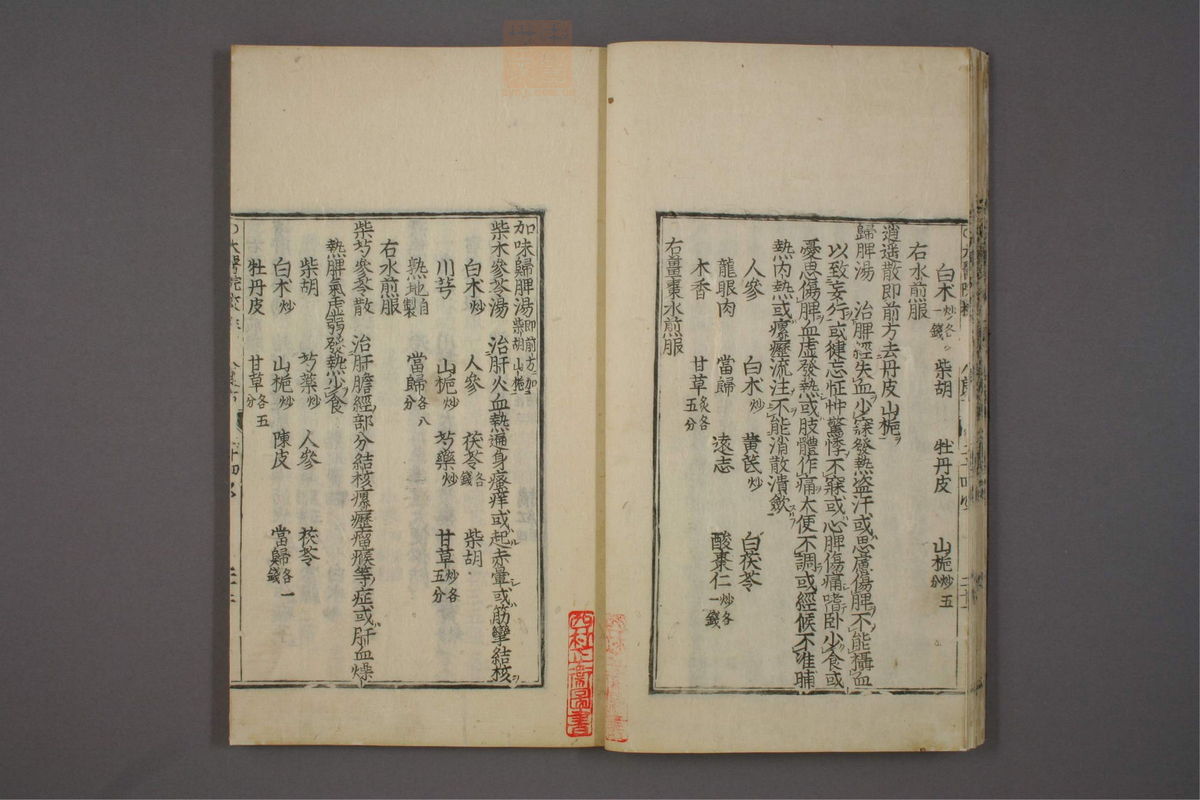 白朮炒各一錢 柴胡 牡丹皮 山梔炒五分
右水煎服
逍遥散即前方去丹皮山梔
歸脾湯 治脾經失血少寐發熱盗汗或思慮傷脾不能攝血
以致妄行或健忘怔忡驚悸不寐或心脾傷痛嗜卧少食或
憂思傷脾血虚發熱或肢體作痛大便不調或經候不准晡
熱内熱或瘰癧流注不能消散潰歛
人參 白朮炒 黄芪炒 白茯苓
龍眼肉 當歸 遠志 酸棗仁炒各一錢
木香 甘草炙各五分
右薑棗水煎服
加味歸脾湯即前方加柴胡山梔
柴朮參苓湯 治肝火血熱遍身瘙痒或起赤暈或筋攣結核
白朮炒 人參 茯苓各錢 柴胡
川芎 山梔炒 芍藥炒 甘草炒各五分
熟地自製 當歸各八分
右水煎服
柴芍參苓散 治肝膽經部分結核瘰癧瘤瘊等症或肝血燥
熱脾氣虚弱發熱少食
柴胡 芍藥炒 人參 茯苓
白朮炒 山梔炒 陳皮 當歸各一錢
牡丹皮 甘草各五分